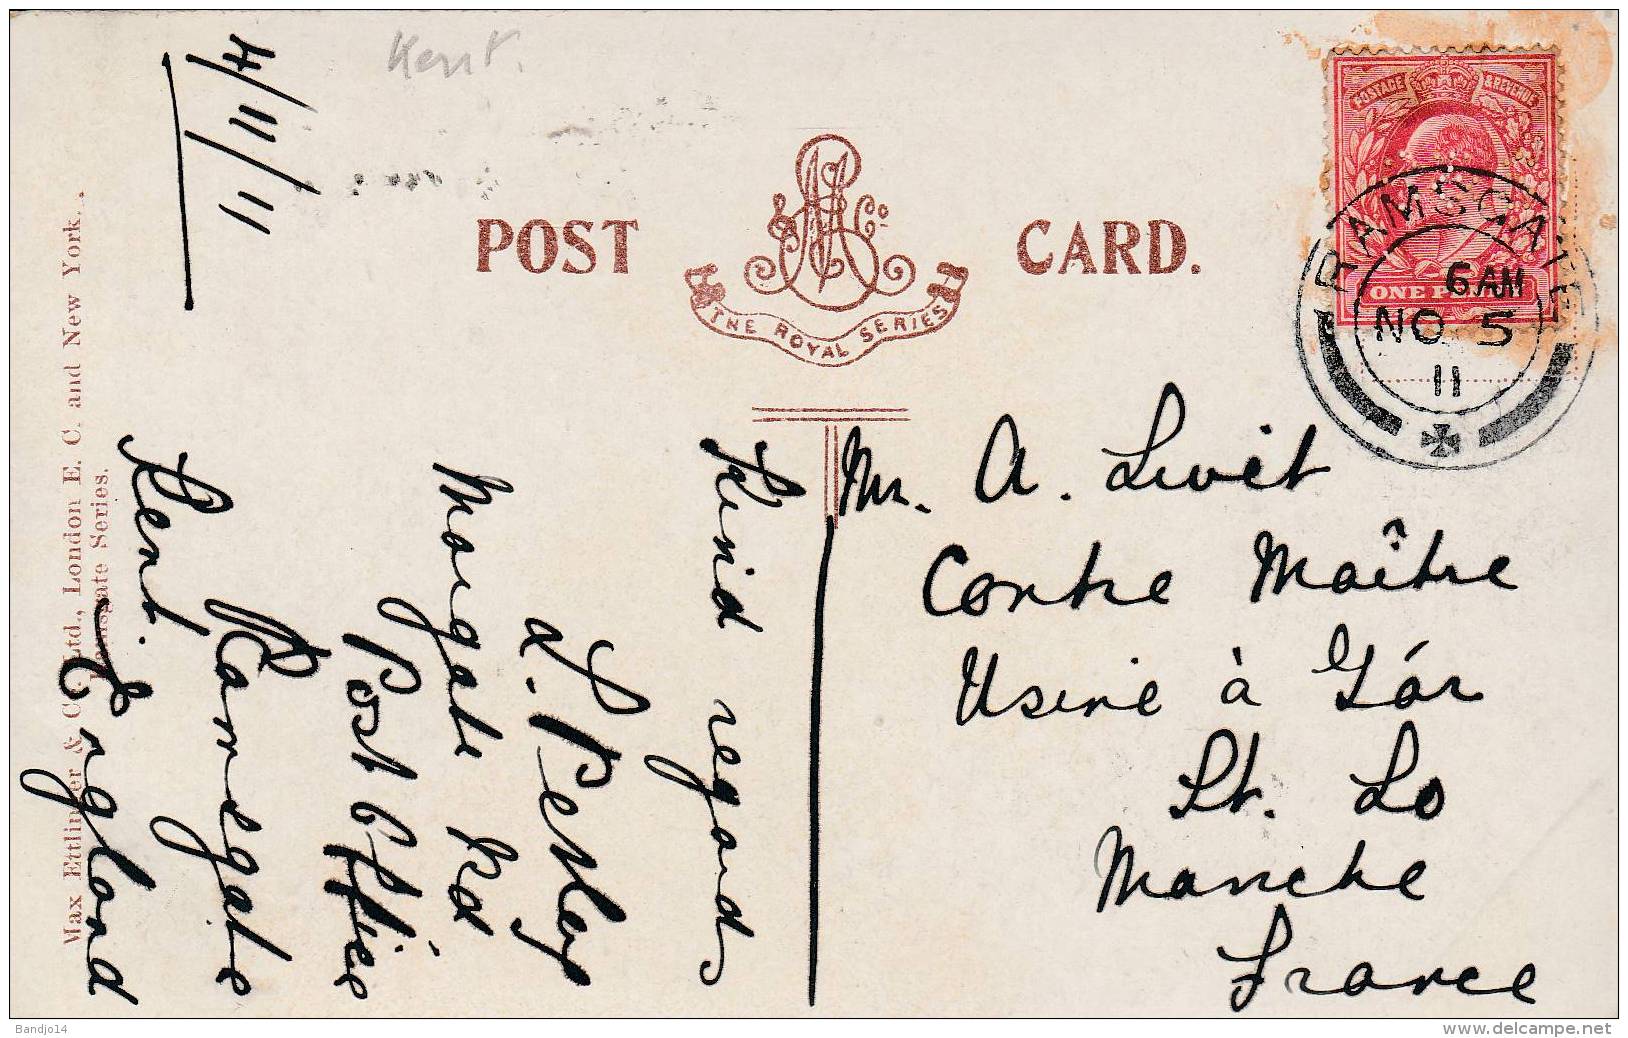 Kent.
4/11/11
POST CARD.
& Co
THE ROYAL SERIES
POSTAGE & REVENUE
ONE PENNY
RAMSGATE
6 AM
NO 5
11
Mr. A. Livet
Contre Maître
Usine à Gár
St. Lo
Manche
France
Kind regards
L. Pestey
Margate Rd
Post Office
Ramsgate
Kent. England
Max Ettlinger & Co. Ltd., London E. C. and New York.
Ramsgate Series.
Bandjo14
www.delcampe.net